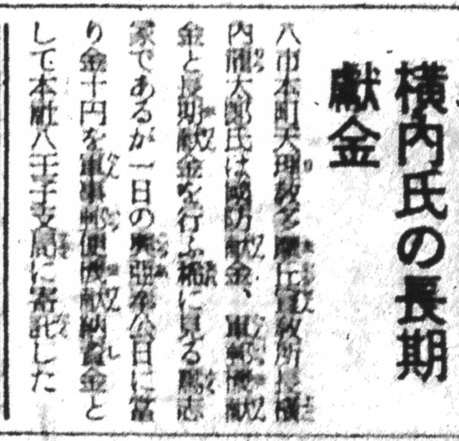 横内氏の長期
献金
八市本町天理教多摩丘宣教所長横
内龍太郎氏は国防献金、軍郵機献
金と長期献金を行ふ稀に見る篤志
家であるが一日の興亜奉公日に当
り金十円を軍事郵便機献納資金と
して本社八王子支局に寄託した